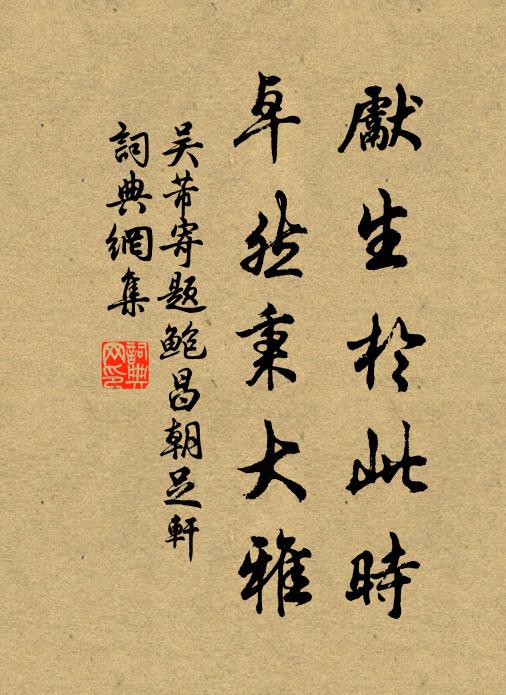 獻生於此時
卓然秉大雅
吴芾寄題鮑昌朝足軒
詞典網集
詞典網印